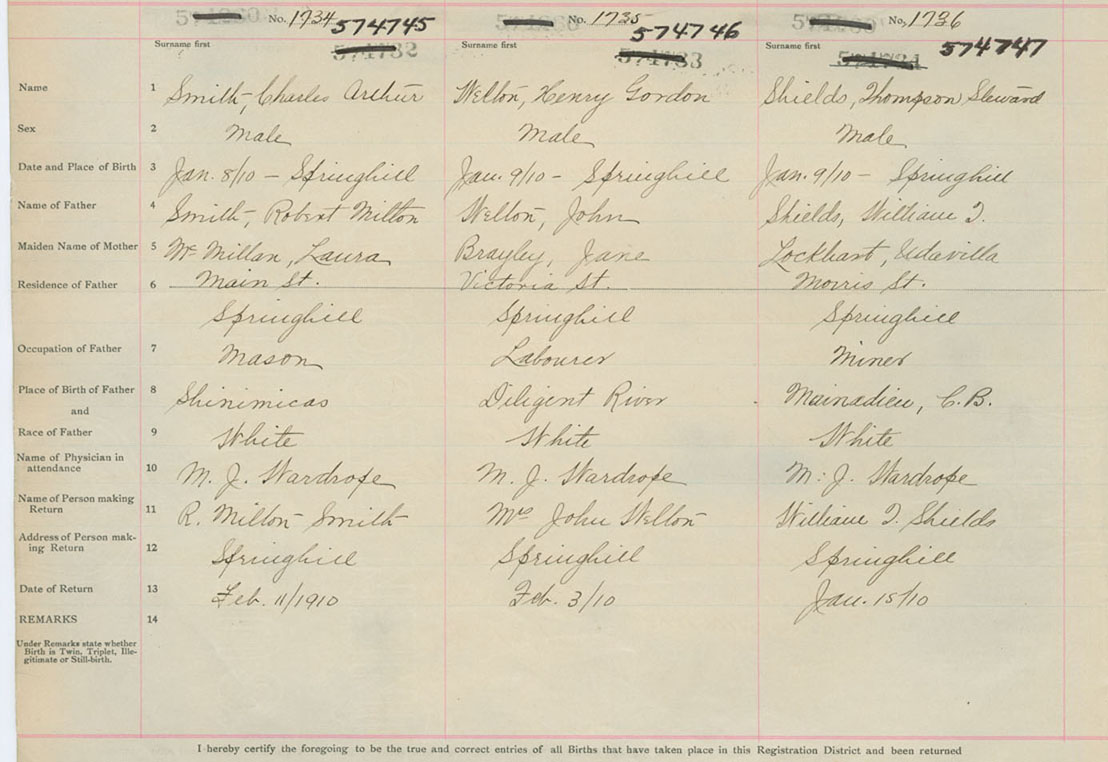 No. 1734 574745 No. 1735 574746 No. 1736 574747
Surname first Surname first Surname first
Name 1 Smith, Charles Arthur Welton, Henry Gordon Shields, Thompson Steward
Sex 2 Male Male Male
Date and Place of Birth 3 Jan. 8/10 - Springhill Jan. 9/10 - Springhill Jan. 9/10 - Springhill
Name of Father 4 Smith, Robert Milton Welton, John Shields, William T.
Maiden Name of Mother 5 Mc Millan, Laura Brayley, Jane Lockhart, Udavilla
Residence of Father 6 Main St. Victoria St. Morris St.
Springhill Springhill Springhill
Occupation of Father 7 Mason Labourer Miner
Place of Birth of Father 8 Shinimicas Diligent River Mainadieu, C.B.
and
Race of Father 9 White White White
Name of Physician in
attendance 10 M. J. Wardrope M. J. Wardrope M. J. Wardrope
Name of Person making
Return 11 R. Milton Smith Mrs John Welton William T. Shields
Address of Person mak-
ing Return 12 Springhill Springhill Springhill
Date of Return 13 Feb. 11/1910 Feb. 3/10 Jan. 15/10
REMARKS 14
Under Remarks state whether
Birth is Twin, Triplet, Ille-
gitimate or Still-birth.
I hereby certify the foregoing to be the true and correct entries of all Births that have taken place in this Registration District and been returned